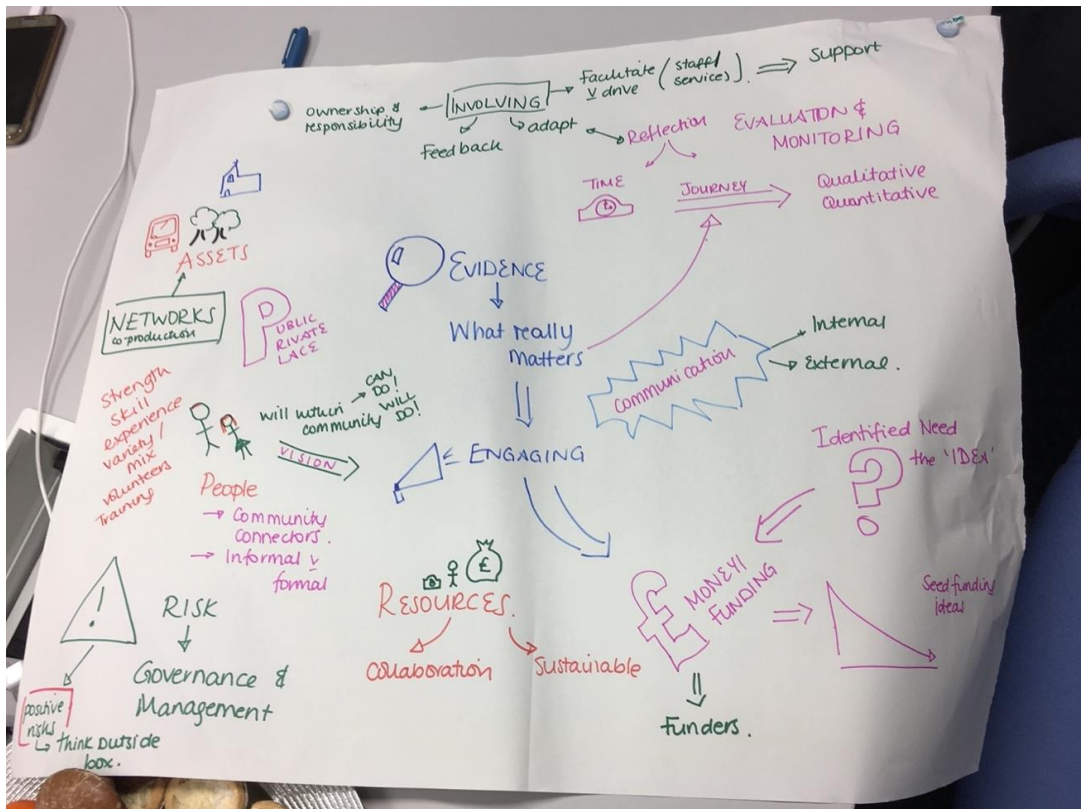 Ownership &
responsibility
INVOLVING
Facilitate
v drive
(staff/
services).
Support
Feedback
adapt
Reflection
EVALUATION &
MONITORING
TIME
JOURNEY
Qualitative
Quantitative
ASSETS
NETWORKS
co-production
PUBLIC
PRIVATE
PLACE
EVIDENCE
What really
matters
Communication
Internal
External.
Strength
Skill
experience
variety/
mix
volunteers
Training
will within
community
CAN
DO!
WILL
DO!
VISION
ENGAGING
People
Community
connectors.
Informal v
formal
Identified Need
the 'IDEA'
?
!
RISK
Governance &
Management
positive
risks
think outside
box.
£
RESOURCES.
Collaboration
Sustainable
£
MONEY/
FUNDING
Seed funding
ideas
Funders.